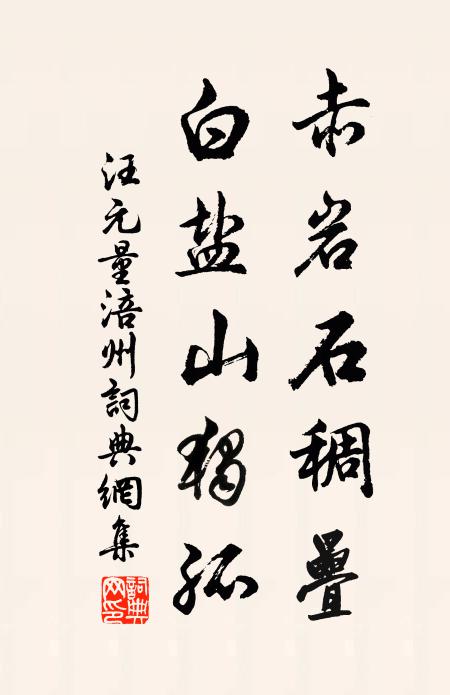 赤岩石稠疊
白盐山独孤
汪元量涪州詞典網集
詞典网印